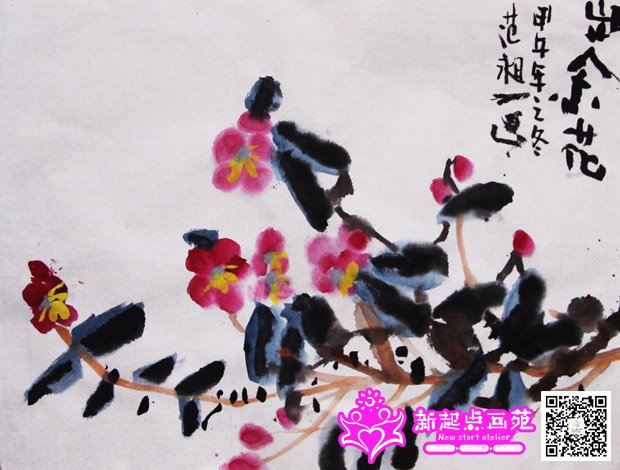 山茶花
甲午年之冬
范
新起点画苑
New start atelier